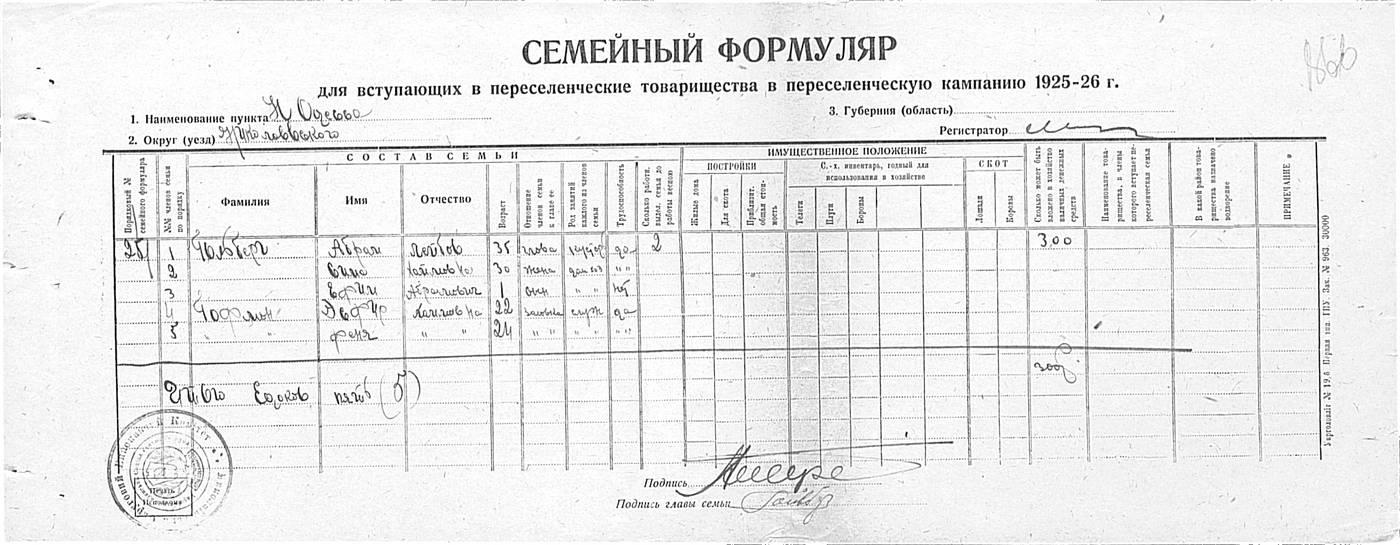 СЕМЕЙНЫЙ ФОРМУЛЯР
для вступающих в переселенческие товарищества в переселенческую кампанию 1925-26 г.
1. Наименование пункта Н Одесса
3. Губерния (область)
2. Округ (уезд) Николаевского
Регистратор
СОСТАВ СЕМЬИ
ИМУЩЕСТВЕННОЕ ПОЛОЖЕНИЕ
Порядковый № семейного формуляра
№№ членов семьи по порядку
Фамилия
Имя
Отчество
Возраст
Отношение членов семьи к главе ее
Род занятий каждого из членов семьи
Трудоспособность
Сколько работн. выдел. семья до работы весною
ПОСТРОЙКИ
Жилые дома
Для скота
Приблизит. общая стоимость
С.-х. инвентарь, годный для использования в хозяйстве
Телеги
Плуги
Бороны
СКОТ
Лошади
Коровы
Сколько может быть вложено в хозяйство наличных денежных средств
Наименование товарищества, в члены которого вступает переселенческая семья
В какой район товарищества назначено водворение
ПРИМЕЧАНИЕ
1 Гольберг Абрам Лейбов 35 глава да 2 300
2 Хаимовна 30 жена дом хоз " "
3 Ефим Абрамович 1 сын " " нет
4 Гофман Хаимовна 22 служ да
5 " " Феня " " 24 " " " " " "
300
Итого Едоков пять (5)
Подпись
Подпись главы семьи
Укрголовліт № 19,8 Перша тип. ГПУ Зак. № 963. 30000